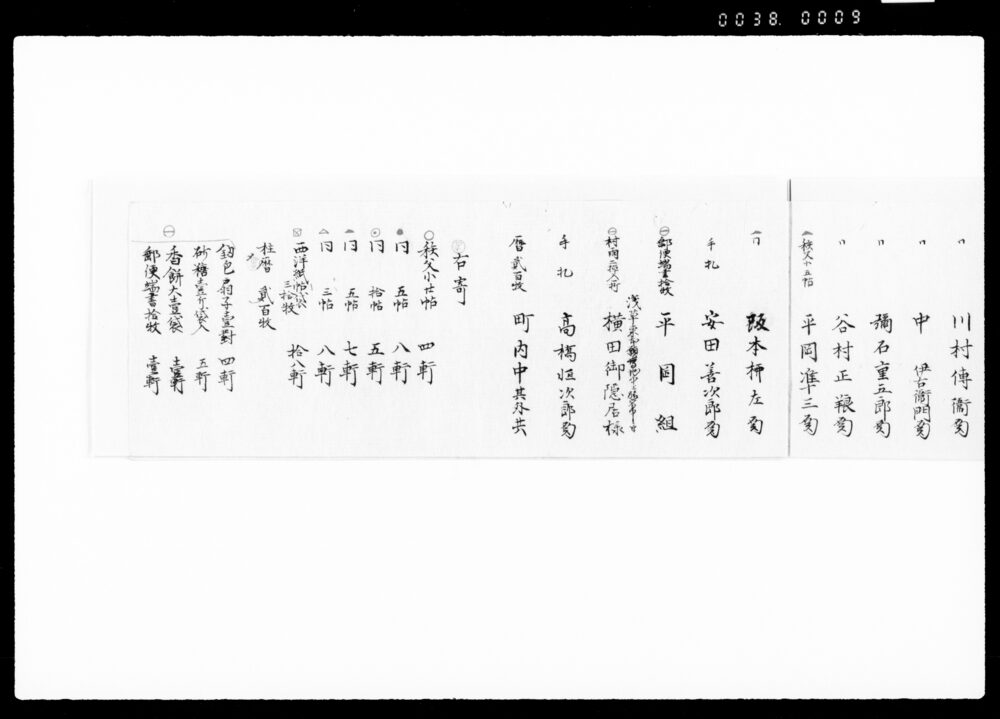 0038. 0009
〃 川村傳衞殿
〃 中 伊右衞門殿
〃 彌石重五郎殿
〃 谷村正躾殿
秩父小五帖 平岡準三殿
円 阪本柳左殿
手札 安田善次郎殿
郵便端書拾枚 平岡組
浅草
村岡 横田御隠居様
手札 高橋恒次郎殿
暦貳百枚 町内中其外共
右寄
秩父小廿帖 四軒
同 五帖 八軒
同 拾帖 五軒
同 五帖 七軒
同 三帖 八軒
西洋紙状袋三拾枚 拾八軒
柱暦 貳百枚
釼包扇子壹對 四軒
砂糖壹斤袋入 五軒
香餅大壹袋 壹軒
郵便端書拾枚 壹軒